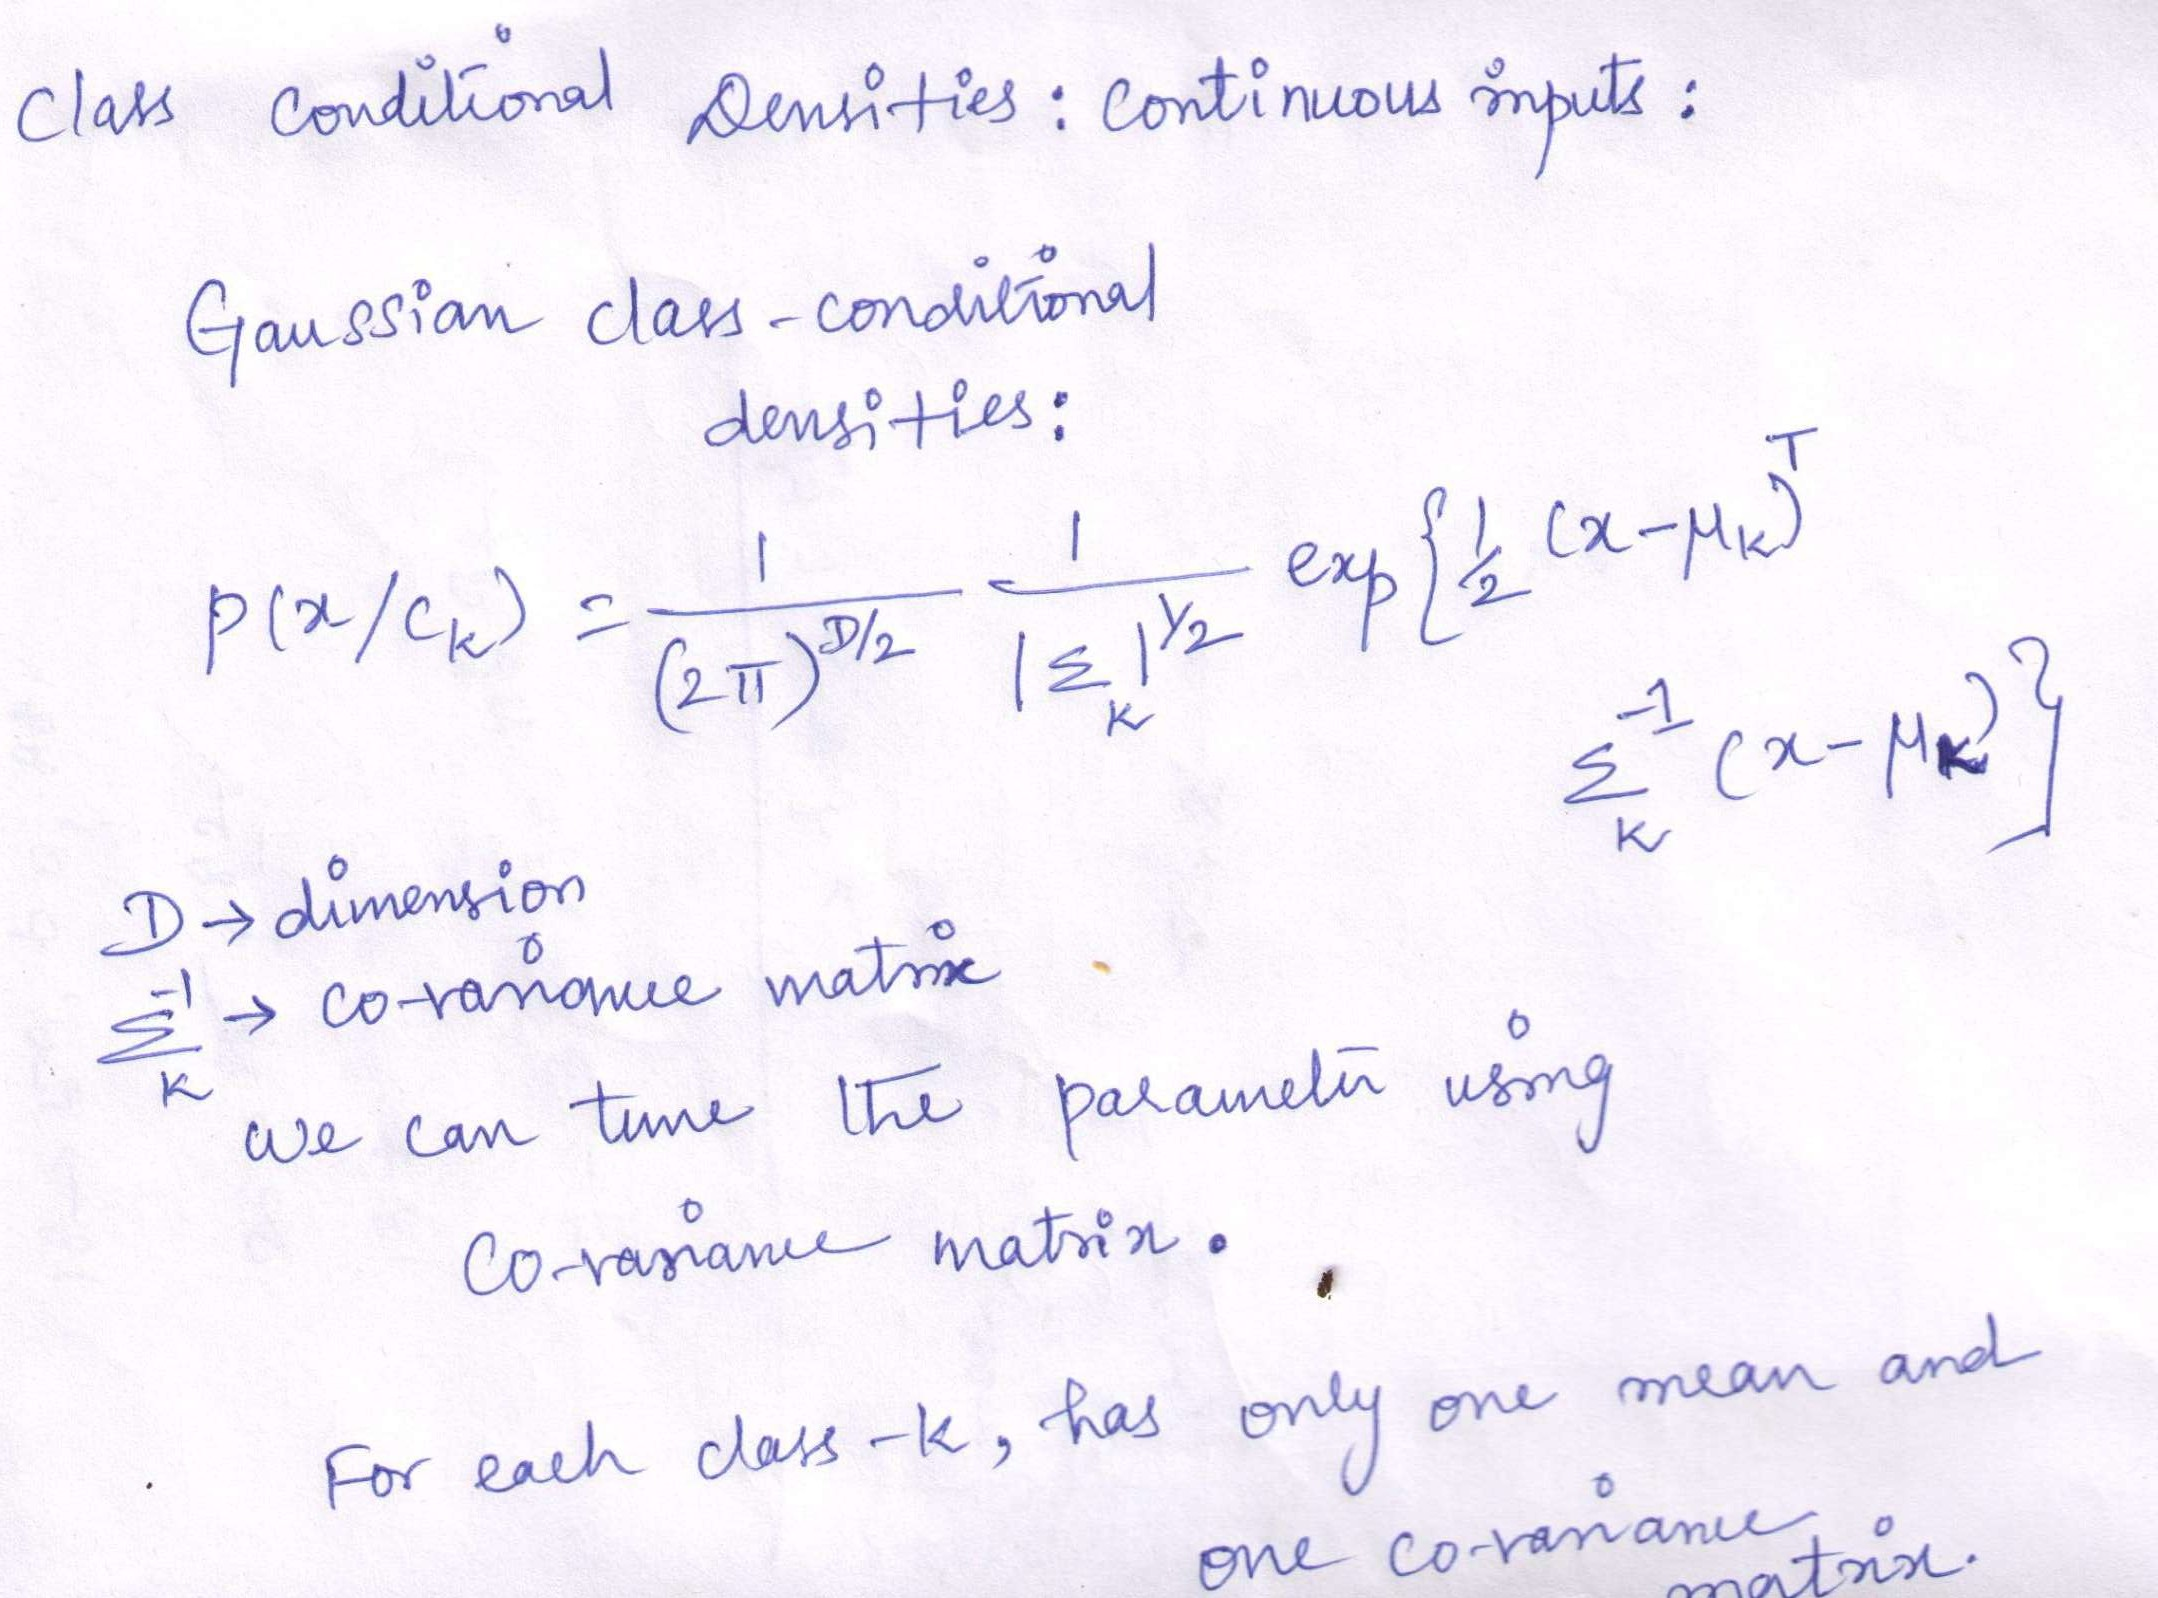 Class conditional Densities: Continuous inputs:
Gaussian class-conditional
densities:
p(x/C_k) = 1/(2π)^{D/2} 1/|Σ_k|^{1/2} exp{1/2 (x-μ_k)^T
Σ_k^{-1} (x-μ_k)}
D → dimension
Σ_k^{-1} → co-variance matrix
we can tune the parameter using
Co-variance matrix.
For each class-k, has only one mean and
one co-variance
matrix.